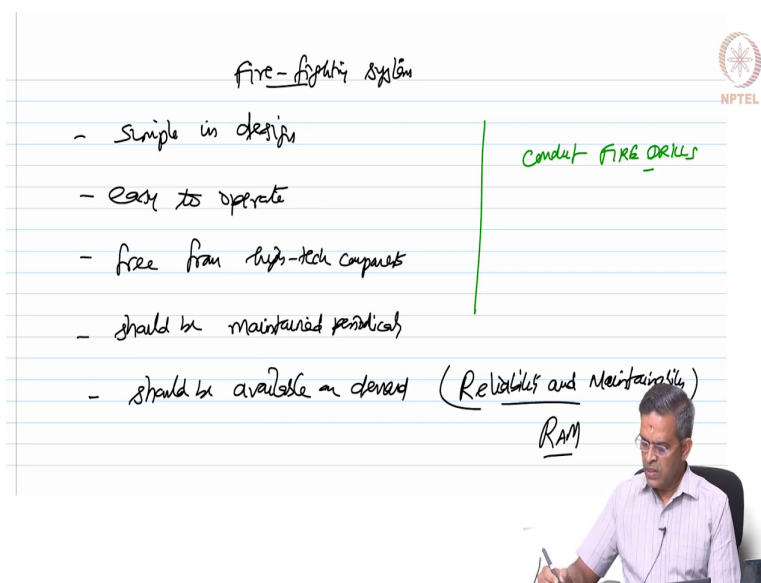 Fire-fighting system
NPTEL
- simple in design
- easy to operate
- free from high-tech components
- should be maintained periodically
- should be available on demand (Reliability and Maintainability)
RAM
Conduct FIRE DRILLS